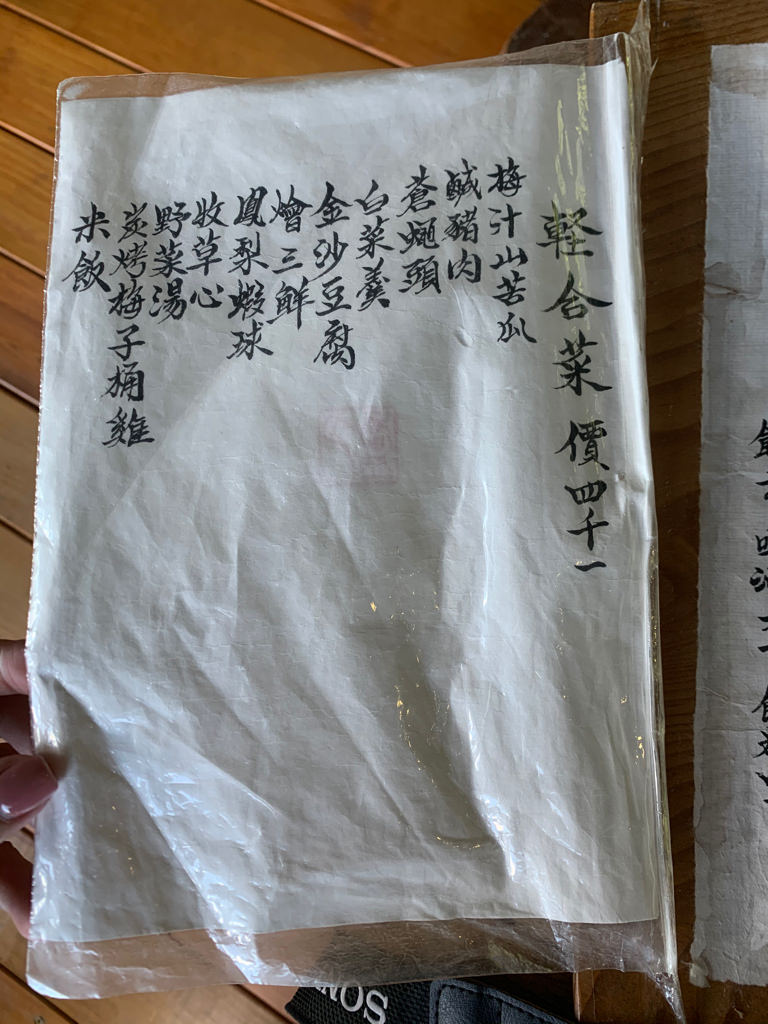 軽合菜 價四千一
梅汁山苦瓜
鹹豬肉
蒼蠅頭
白菜羹
金沙豆腐
燴三鮮
鳳梨蝦球
牧草心
野菜湯
炭烤梅子桶雞
米飯